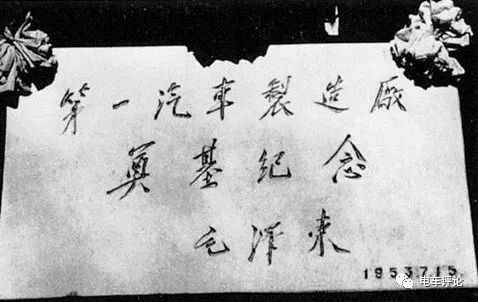 第一汽車製造廠
奠基紀念
毛澤東
1953715
电车评论